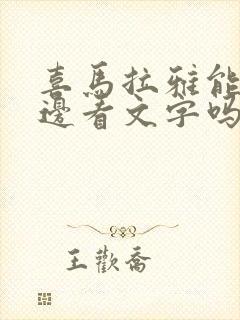 喜馬拉雅能
邊看文字嗎
王歡喬